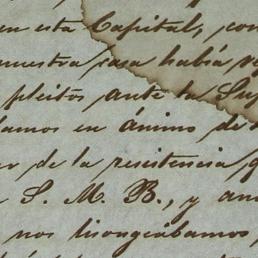 en esta Capital, con
nuestra casa había
pleitos ante la Sup
amos en ánimo de
de la resistencia, q
S. M. B., y au
nos lisongeábamos,